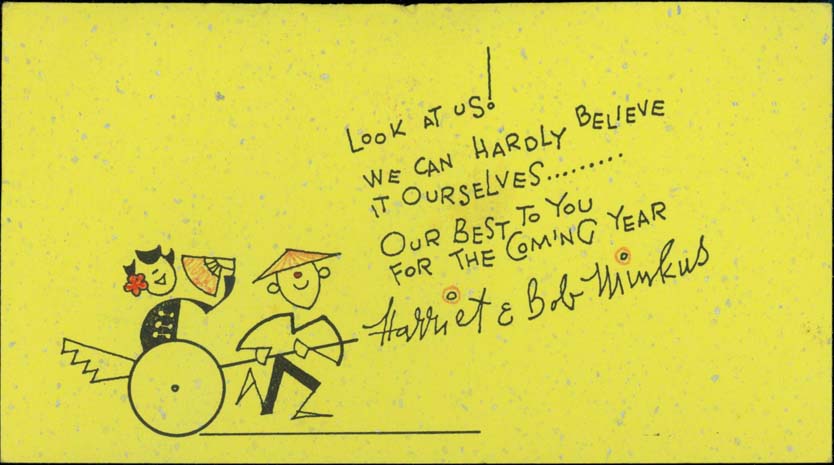 LOOK AT US!
WE CAN HARDLY BELIEVE
IT OURSELVES.........
OUR BEST TO YOU
FOR THE COMING YEAR
Harriet & Bob Minkus